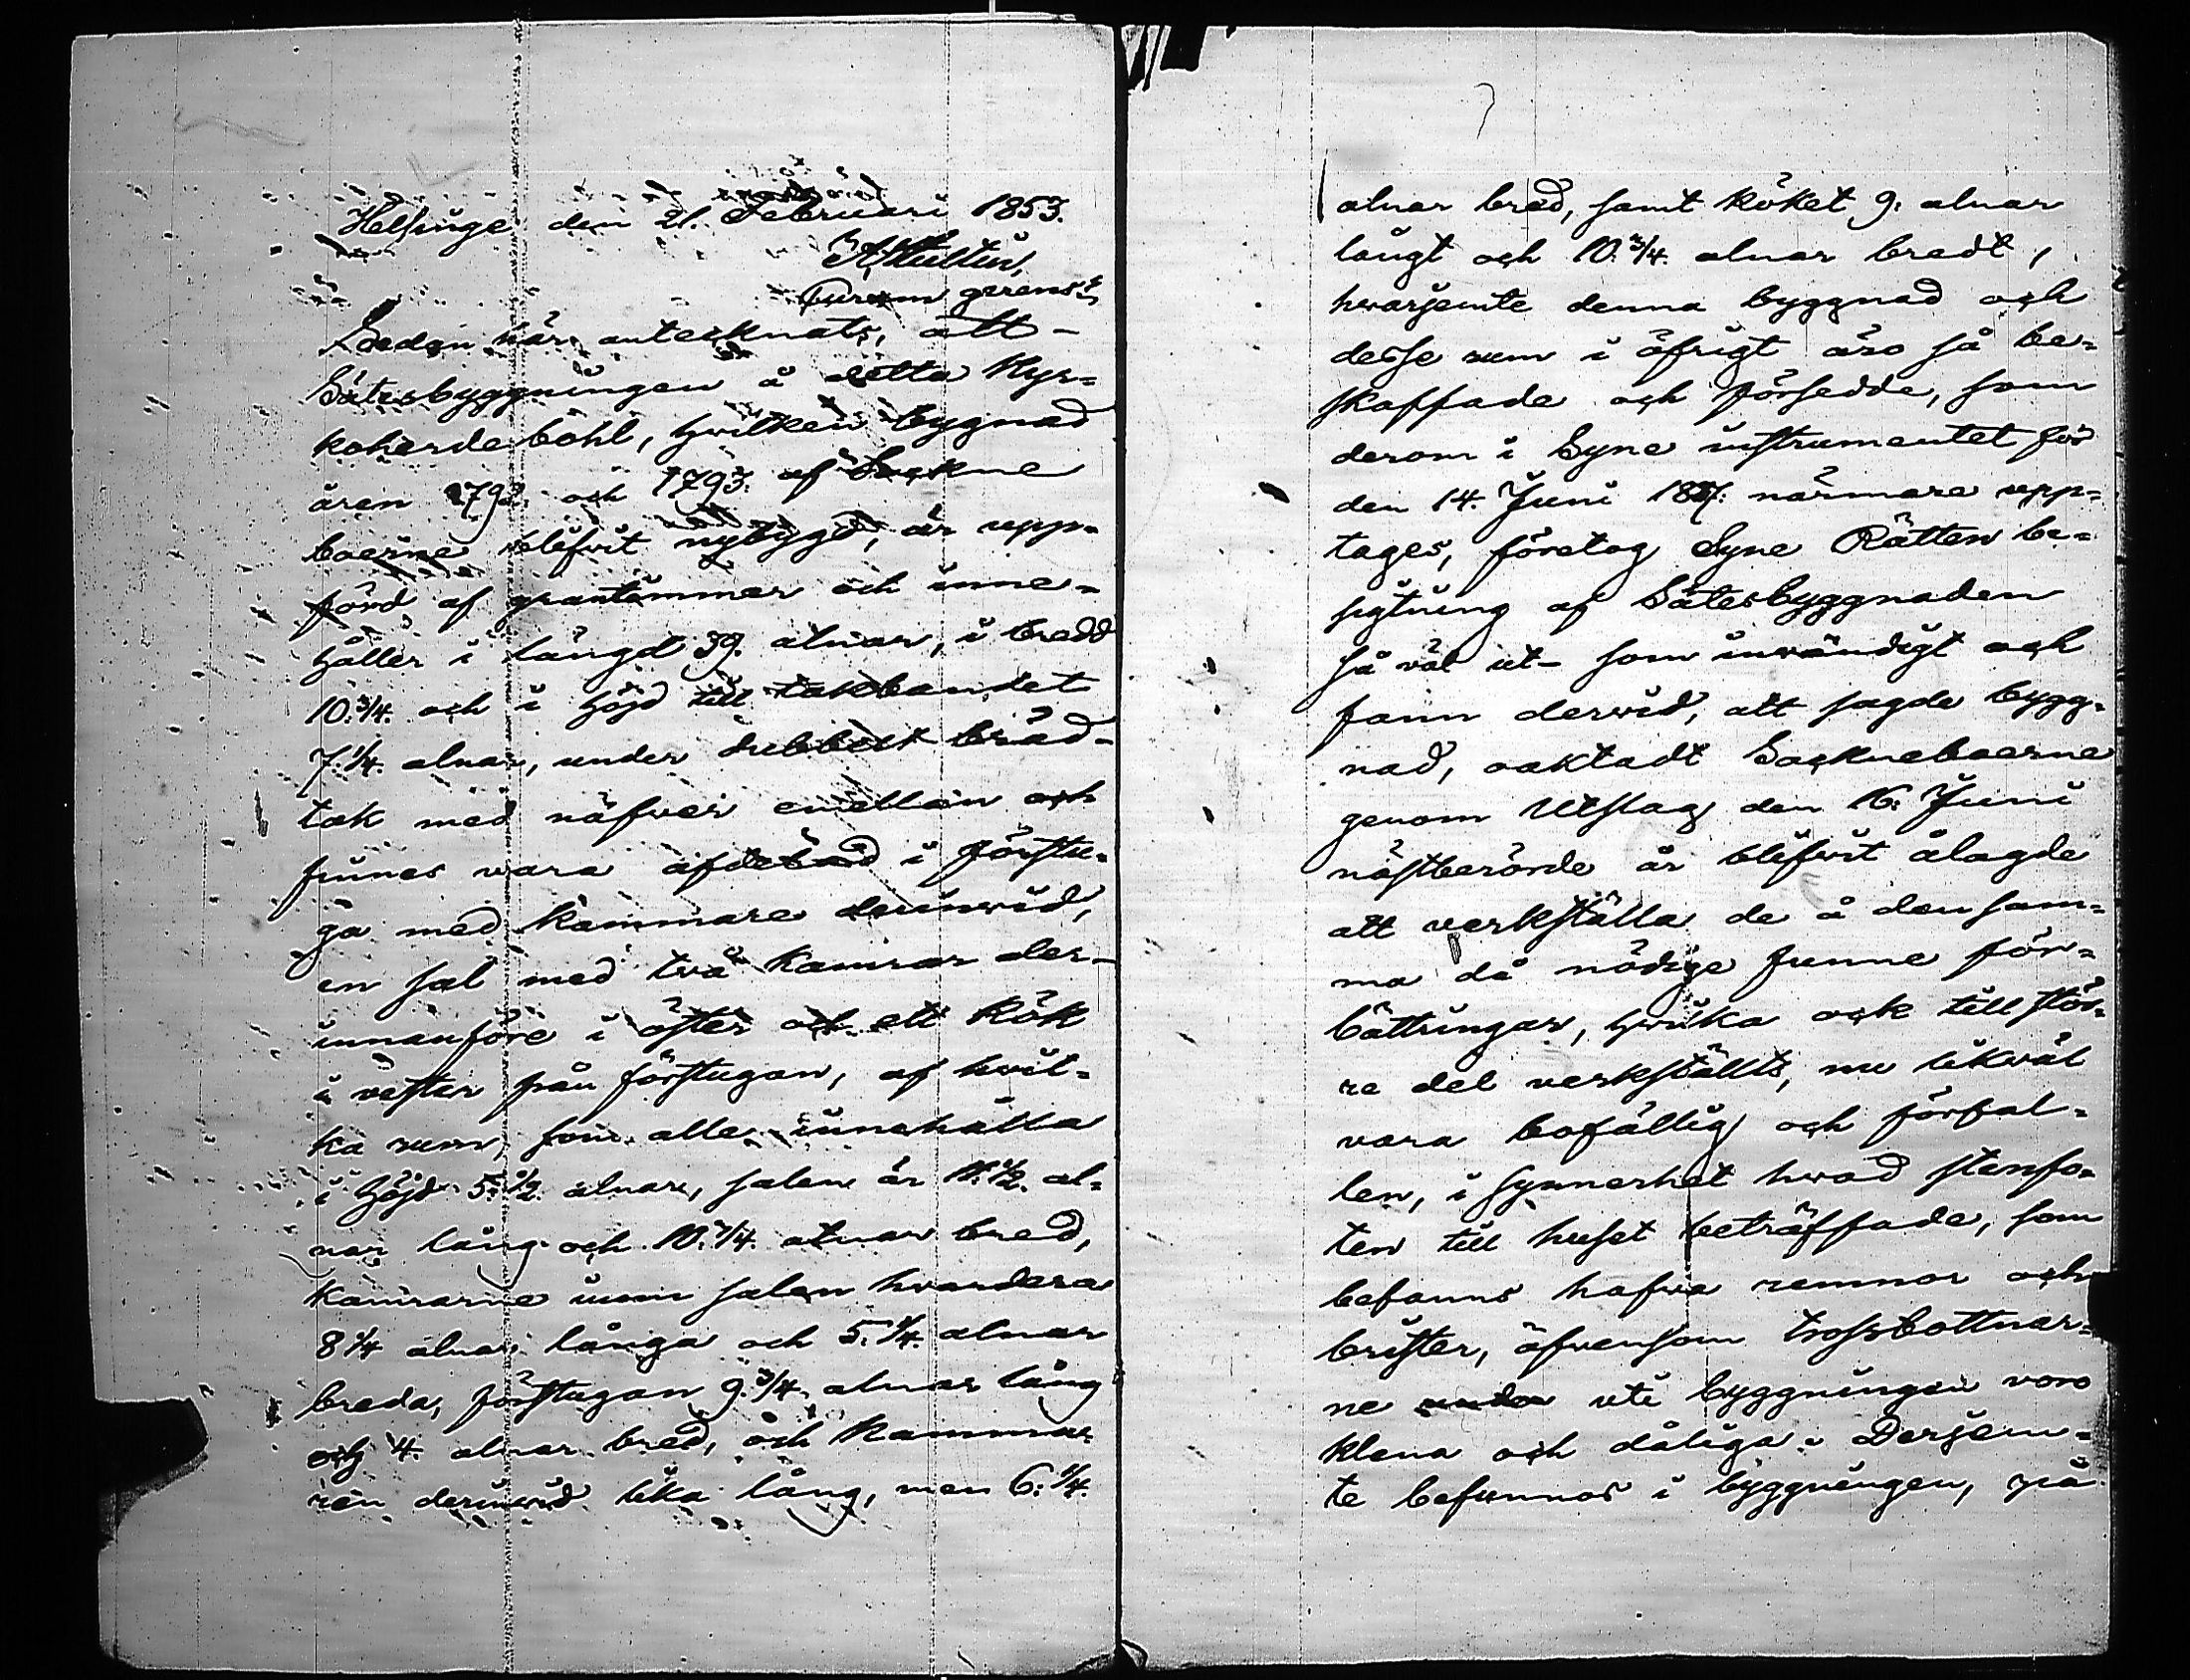 Helsinge den 21. Februari 1853.
A Hultin,
Curam gerens.
Sedan här antecknats, att
Sätesbyggningen å detta Kyr-
koherdeböhl, hvilken bygnad
åren 1792. och 1793. af Sockne
boerne blifvit nybygd, är upp-
förd af grantimmer och inne-
håller i längd 39. alnar, i bredd
10. 3/4. och i höjd till takbandet
7. 1/4. alnar, under dubbelt bräd-
tak med näfver emellan och
finnes vara afdelad i förstu-
ga med kammare derinvid,
en sal med två kamrar der-
innanföre i öster och ett Kök
i vester från förstugan, af hvil-
ka rum, som alla innehålla
i höjd 5. 1/2. alnar, salen är 11. 1/2. al-
nar lång och 10. 3/4. alnar bred,
kamrarne innom salen hvardera
8 1/4 alnar långa och 5. 1/4. alnar
breda, förstugan 9. 3/4. alnar lång
och 4. alnar bred, och Kamma-
ren derinvid lika lång, men 6. 1/4.
alnar bred, samt köket 9. alnar
långt och 10. 3/4. alnar bredt,
hvarjemte denna byggnad och
desse rum i öfrigt äro så be-
skaffade och försedde, som
derom i Syne instrumentet för
den 14. Juni 1827. närmare upp-
tages, företog Syne Rätten be-
sigtning af Sätesbyggnaden
så väl ut- som invändigt och
fann dervid, att sagde bygg-
nad, oaktadt Socknebaerne
genom Utslag den 16. Juni
nästberörde år blifvit ålagde
att verkställa de å den sam-
ma då nödige funne för-
bättringar, hvilka ock till stör-
re del verkställts, nu likväl
vara bofällig och förfal-
len, i synnerhet hvad stenfo-
ten till huset beträffade, som
befanns hafva remnor och
brister, äfvensom trossbottnar-
ne uti byggningen voro
klena och dåliga. Derjem-
te befunnos i byggningen, på